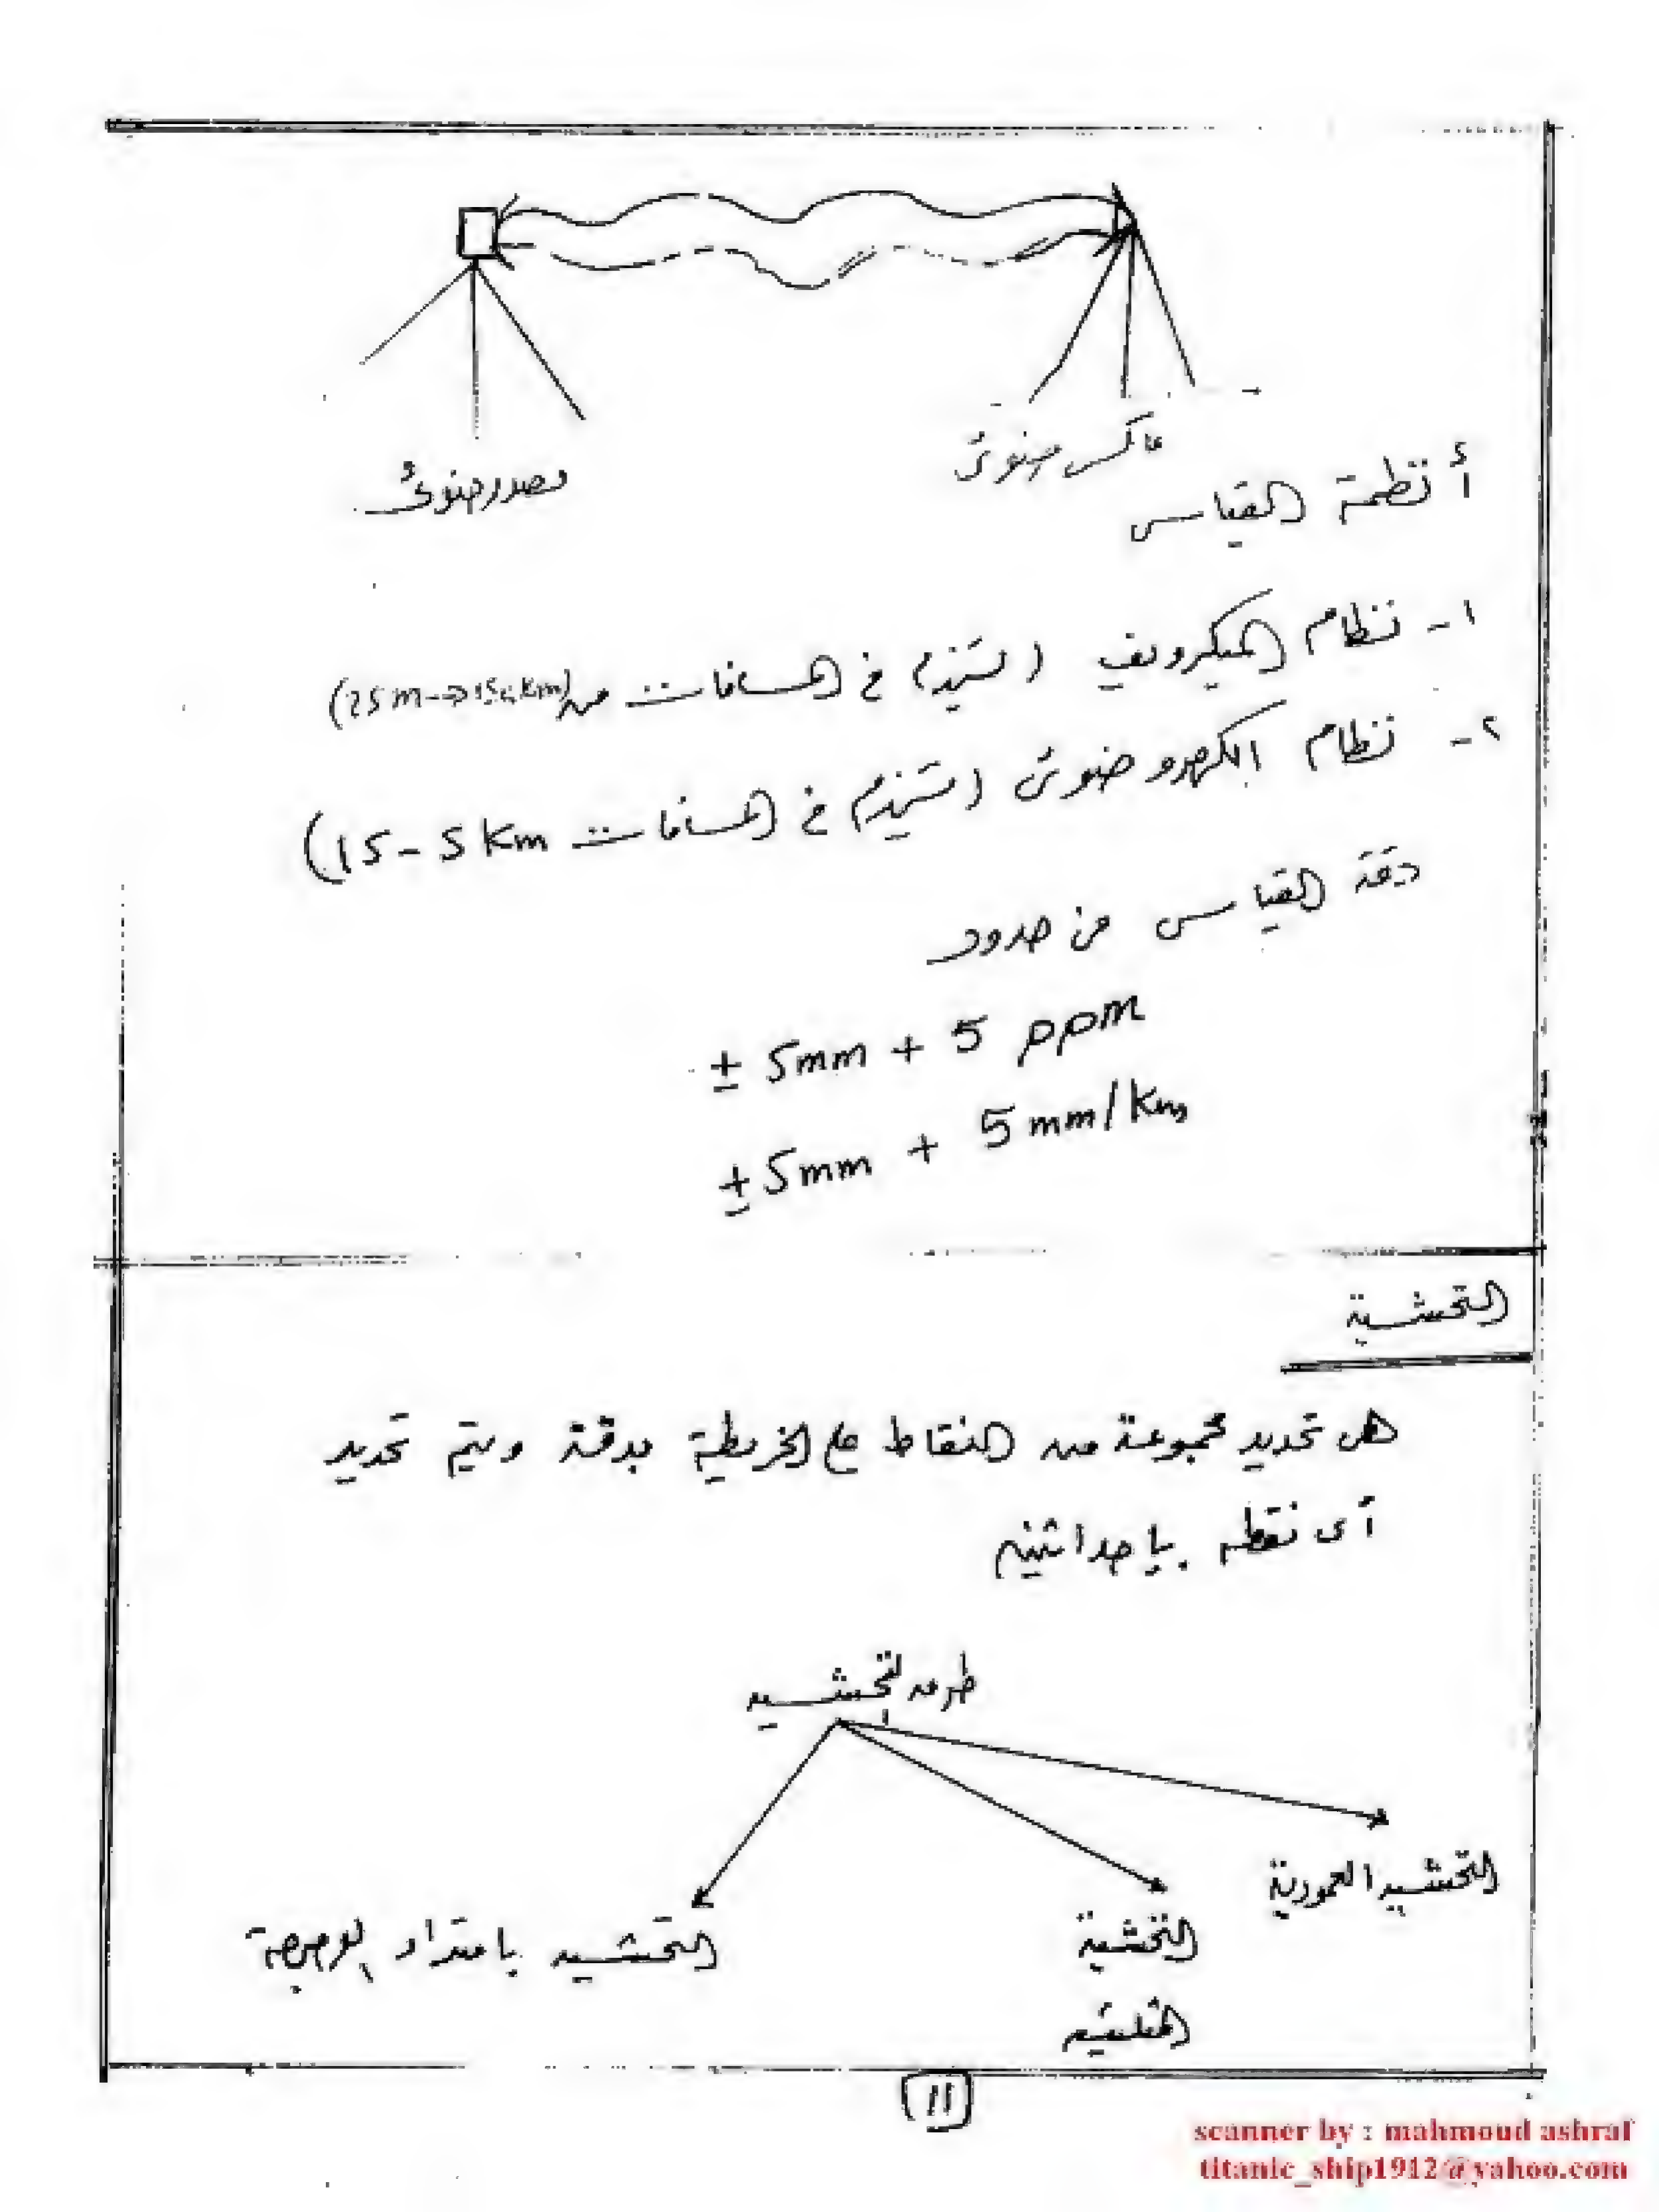 عاكس ضوئى
مصدر ضوئى
أنظمة القياس
١- نظام الميكروويف (تستخدم فى المسافات من (25m → 150km)
٢- نظام الكهروضوئى (تستخدم فى المسافات 15 - 5 Km)
دقة القياس فى حدود
± 5mm + 5 ppm
± 5mm + 5 mm/Km
التحشية
هى تحديد مجموعة من النقاط على الخريطة بدقة ويتم تحديد
أى نقطه بإحداثين
طرق التحشيه
التحشيه العمودية
التحشية
المثلثيه
التحشيه بامتداد الواجهة
11
scanner by : mahmoud ashraf
titanic_ship1912@yahoo.com